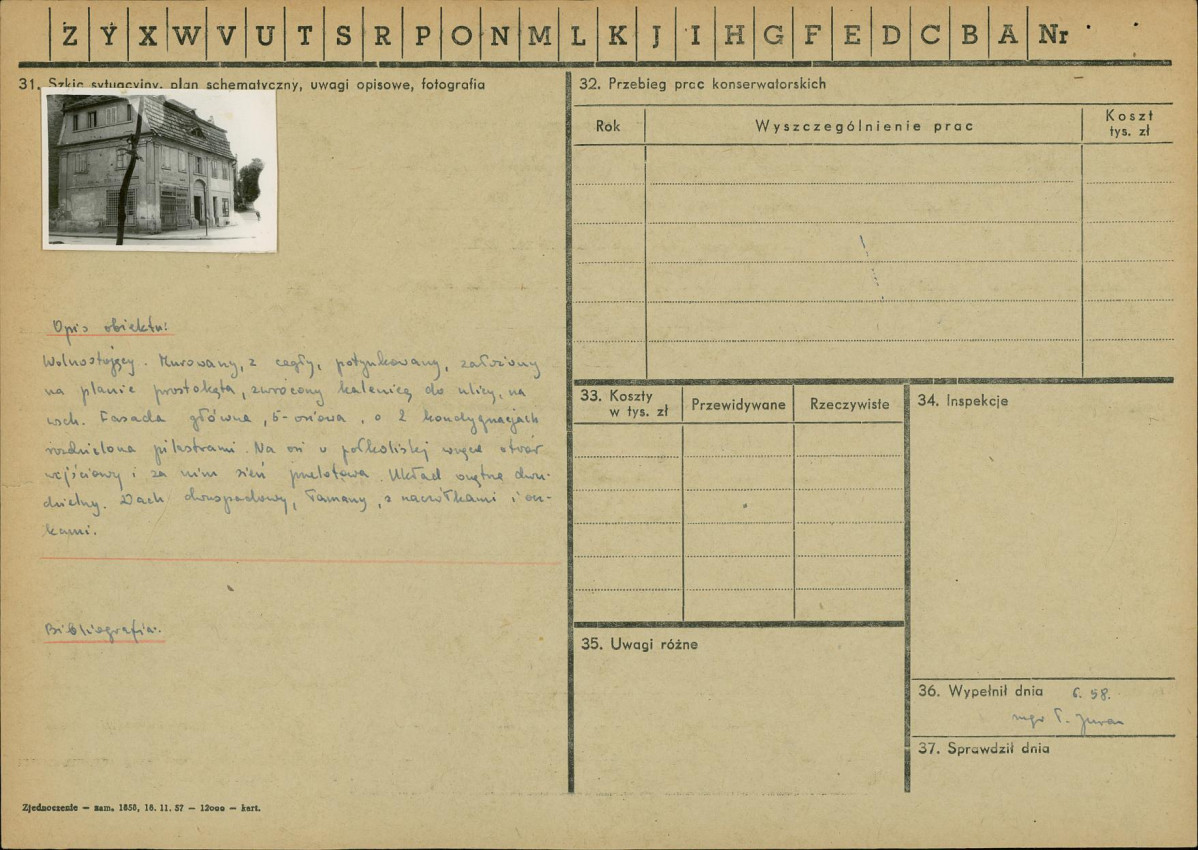 Z Y X W V U T S R P O N M L K J I H G F E D C B A Nr
31. Szkic sytuacyjny, plan schematyczny, uwagi opisowe, fotografia
Opis obiektu:
Wolnostojący. Murowany, z cegły, potynkowany, założony
na planie prostokąta, zwrócony kalenicą do ulicy, na
wsch. Fasada główna, 5-osiowa, o 2 kondygnacjach
rozdzielona pilastrami. Na osi w półkolistej wnęce otwór
wejściowy i za nim sień przelotowa. Układ wnętrz dwu-
dzielny. Dach dwuspadowy, łamany, z naczółkami i ocz-
kami.
Bibliografia:
Zjednoczenie — zam. 1858, 16. 11. 57 — 12000 — kart.
32. Przebieg prac konserwatorskich
Rok
Wyszczególnienie prac
Koszt
tys. zł
33. Koszty
w tys. zł
Przewidywane
Rzeczywiste
34. Inspekcje
35. Uwagi różne
36. Wypełnił dnia 6. 58.
mgr
37. Sprawdził dnia